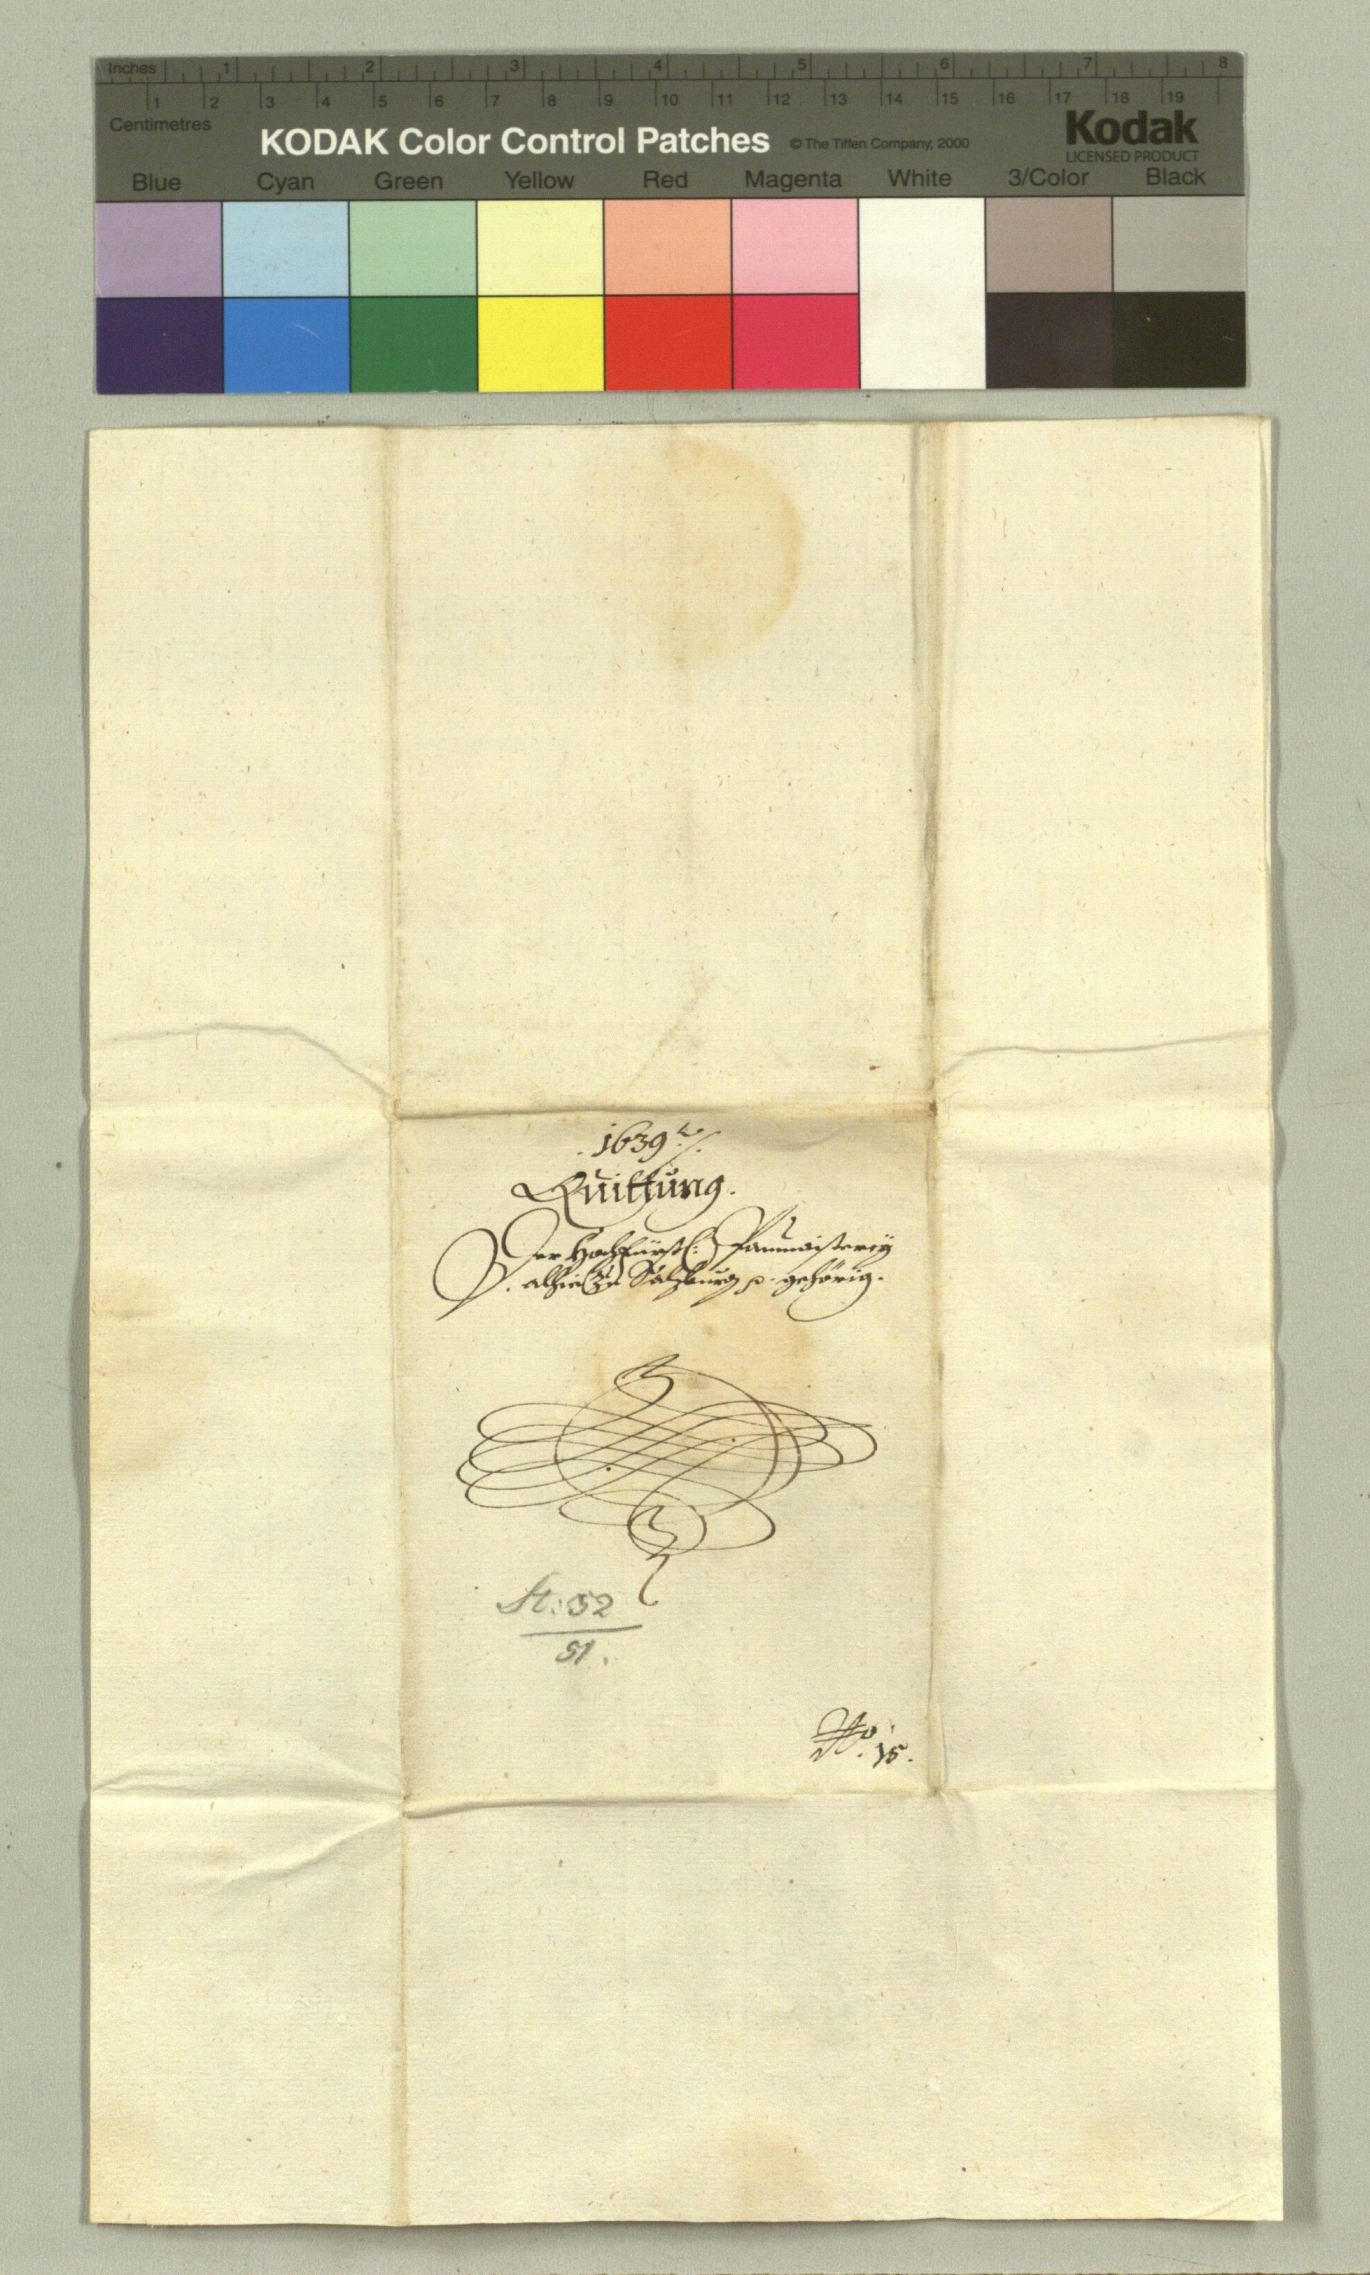 Inches 1 2 3 4 5 6 7 8
1 2 3 4 5 6 7 8 9 10 11 12 13 14 15 16 17 18 19
Centimetres
KODAK Color Control Patches © The Tiffen Company, 2000 Kodak
LICENSED PRODUCT
Blue Cyan Green Yellow Red Magenta White 3/Color Black
.1639
Quittung.
Der Hochfürstl: Paumaisterey
. alhie Zu Salzburg p. gehörig.
St: 52
51.
No. 15.